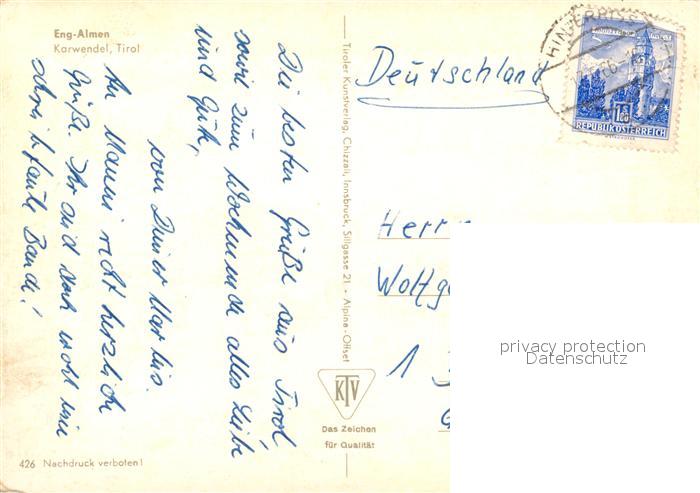 Eng-Almen
Karwendel, Tirol
Die besten Grüße aus Tirol
sowie zum Wochenende alles Liebe
und Gute,
von Deiner
An Manni recht herzliche
Grüße. Ihr seid doch wohl eine
schreibfaule Bande!
426 Nachdruck verboten!
Tiroler Kunstverlag, Chizzali, Innsbruck, Sillgasse 21 • Alpina-Offset
KTV
Das Zeichen
für Qualität
Deutschland
1.50
REPUBLIK ÖSTERREICH
Herrn
Wolfg
1
privacy protection
Datenschutz